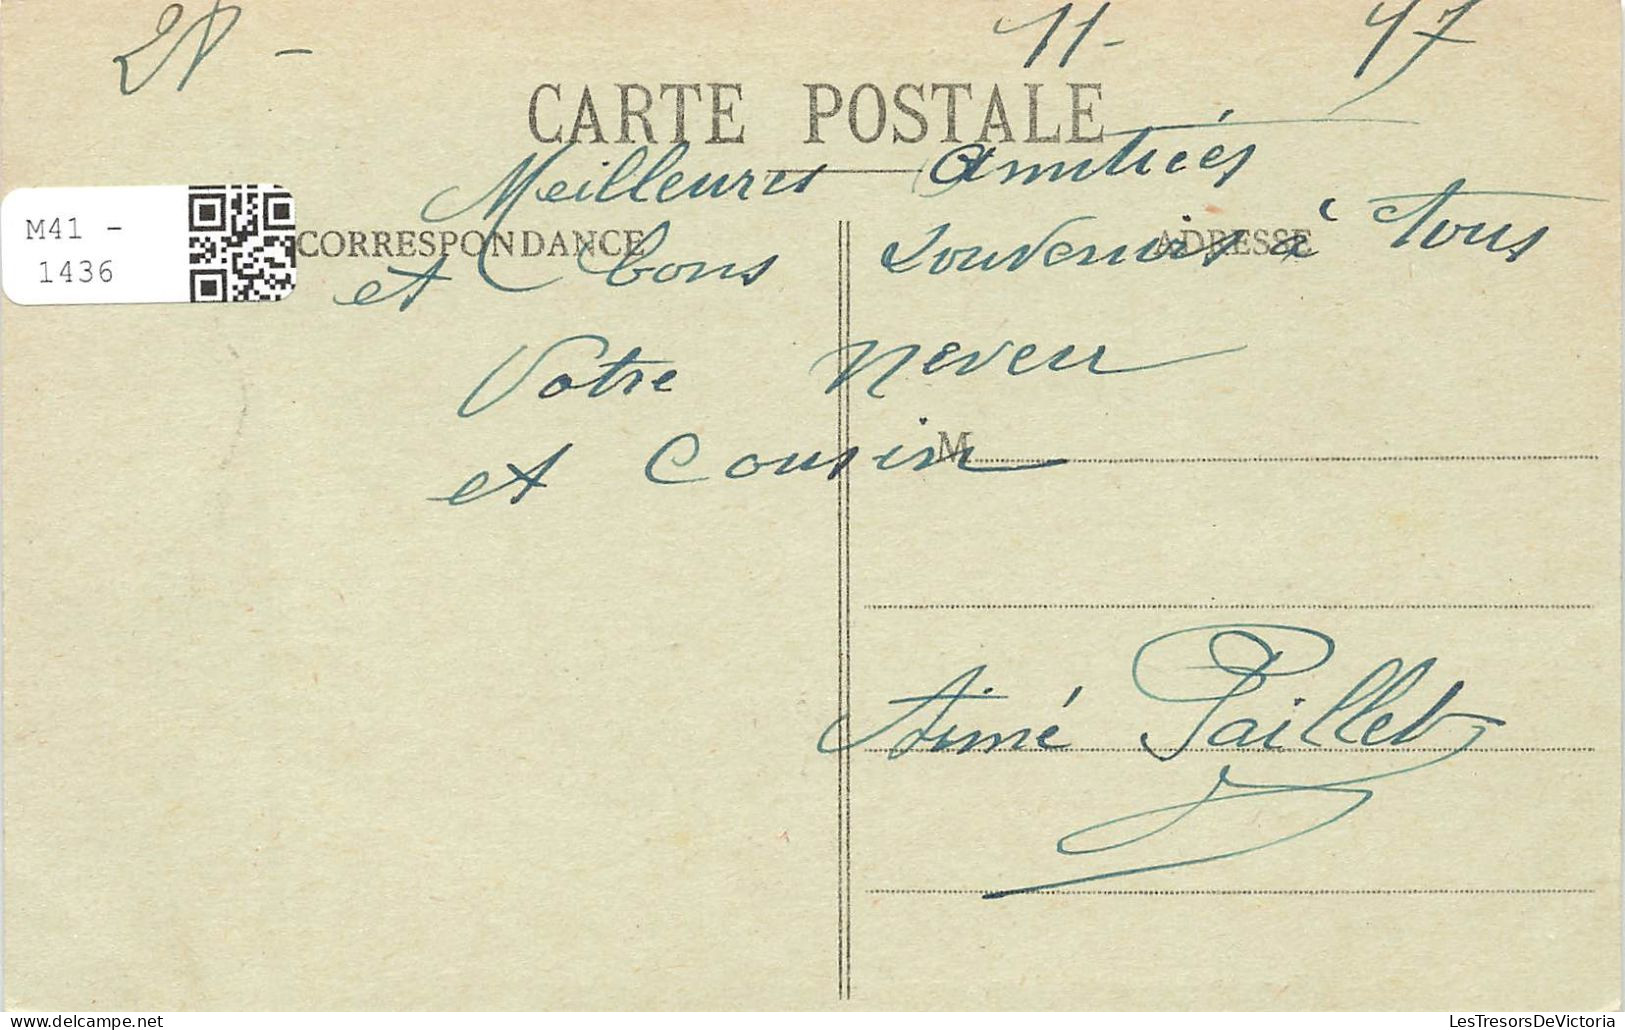 28 - 11 - 17
CARTE POSTALE
Meilleures Amitiés
M41 -
1436
CORRESPONDANCE
ADRESSE
et bons souvenirs à tous
Votre neveu
et Cousin
M
Aimé Paillet
LesTresorsDeVictoria